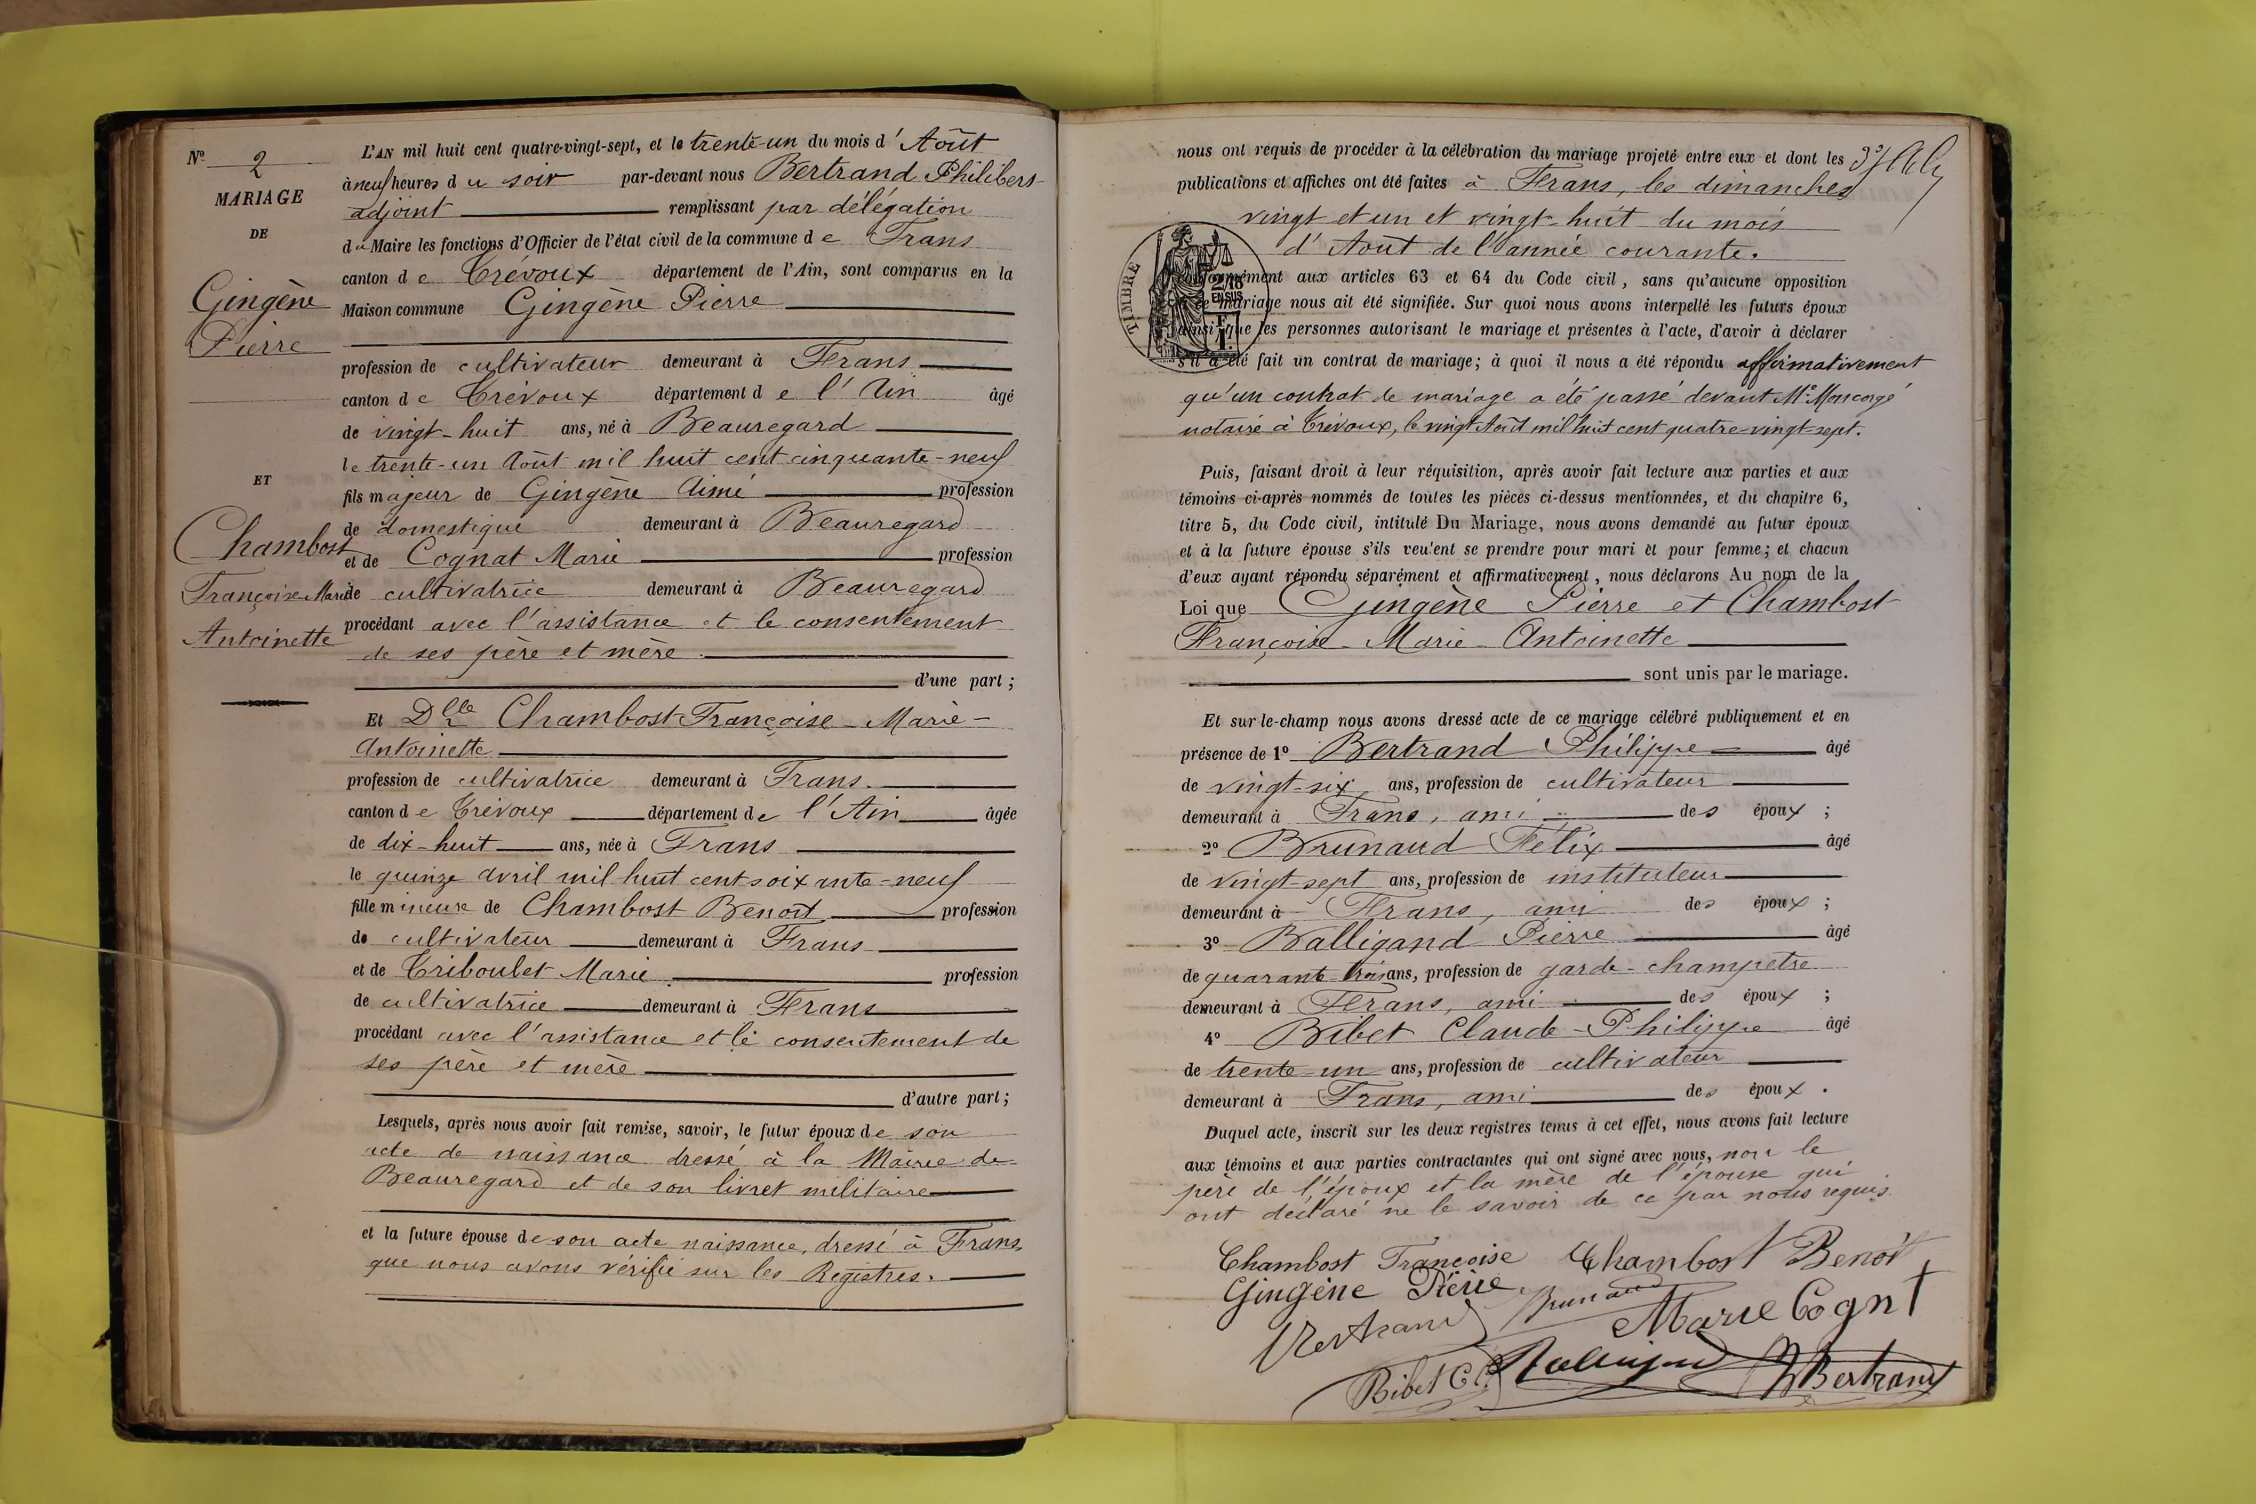 N° 2
MARIAGE
DE
Gingène
Pierre
ET
Chambost
Françoise-Marie
Antoinette
L'AN mil huit cent quatre-vingt-sept, et le trente-un du mois d'Août
à neuf heures du soir par-devant nous Bertrand Philibert
adjoint remplissant par délégation
du Maire les fonctions d'Officier de l'état civil de la commune de Frans
canton de Trévoux département de l'Ain, sont comparus en la
Maison commune Gingène Pierre
profession de cultivateur demeurant à Frans
canton de Trévoux département de l'Ain âgé
de vingt-huit ans, né à Beauregard
le trente-un Août mil huit cent cinquante-neuf
fils majeur de Gingène Aimé profession
de domestique demeurant à Beauregard
et de Cognat Marie profession
de cultivatrice demeurant à Beauregard
procédant avec l'assistance et le consentement
de ses père et mère
d'une part ;
Et Dlle Chambost Françoise-Marie-
Antoinette
profession de cultivatrice demeurant à Frans
canton de Trévoux département de l'Ain âgée
de dix-huit ans, née à Frans
le quinze Avril mil huit cent soixante-neuf
fille mineure de Chambost Benoît profession
de cultivateur demeurant à Frans
et de Triboulet Marie profession
de cultivatrice demeurant à Frans
procédant avec l'assistance et le consentement de
ses père et mère
d'autre part ;
Lesquels, après nous avoir fait remise, savoir, le futur époux de son
acte de naissance dressé à la Mairie de
Beauregard et de son livret militaire
et la future épouse de son acte naissance, dressé à Frans
que nous avons vérifié sur les Registres.
nous ont requis de procéder à la célébration du mariage projeté entre eux et dont les
publications et affiches ont été faites à Frans, les dimanches
vingt et un et vingt-huit du mois
d'Août de l'année courante.
TIMBRE
2/10
EN SUS
conformément aux articles 63 et 64 du Code civil, sans qu'aucune opposition
à ce mariage nous ait été signifiée. Sur quoi nous avons interpellé les futurs époux
ainsi que les personnes autorisant le mariage et présentes à l'acte, d'avoir à déclarer
s'il a été fait un contrat de mariage ; à quoi il nous a été répondu affirmativement
qu'un contrat de mariage a été passé devant Me Moncorgé
notaire à Trévoux, le vingt Août mil huit cent quatre-vingt-sept.
Puis, faisant droit à leur réquisition, après avoir fait lecture aux parties et aux
témoins ci-après nommés de toutes les pièces ci-dessus mentionnées, et du chapitre 6,
titre 5, du Code civil, intitulé Du Mariage, nous avons demandé au futur époux
et à la future épouse s'ils veulent se prendre pour mari et pour femme ; et chacun
d'eux ayant répondu séparément et affirmativement, nous déclarons Au nom de la
Loi que Gingène Pierre et Chambost
Françoise-Marie-Antoinette
sont unis par le mariage.
Et sur-le-champ nous avons dressé acte de ce mariage célébré publiquement et en
présence de 1° Bertrand Philippe âgé
de vingt-six ans, profession de cultivateur
demeurant à Frans, ami des époux ;
2° Brunaud Félix âgé
de vingt-sept ans, profession de instituteur
demeurant à Frans, ami des époux ;
3° Balligand Pierre âgé
de quarante-trois ans, profession de garde-champêtre
demeurant à Frans, ami des époux ;
4° Bibet Claude-Philippe âgé
de trente-un ans, profession de cultivateur
demeurant à Frans, ami des époux.
Duquel acte, inscrit sur les deux registres tenus à cet effet, nous avons fait lecture
aux témoins et aux parties contractantes qui ont signé avec nous, non le
père de l'époux et la mère de l'épouse qui
ont déclaré ne le savoir de ce par nous requis.
Chambost Françoise Chambost Benoît
Gingène Pierre Brunaud
Bertrand Marie Cognt
Bibet C.P. Balligand Bertrand